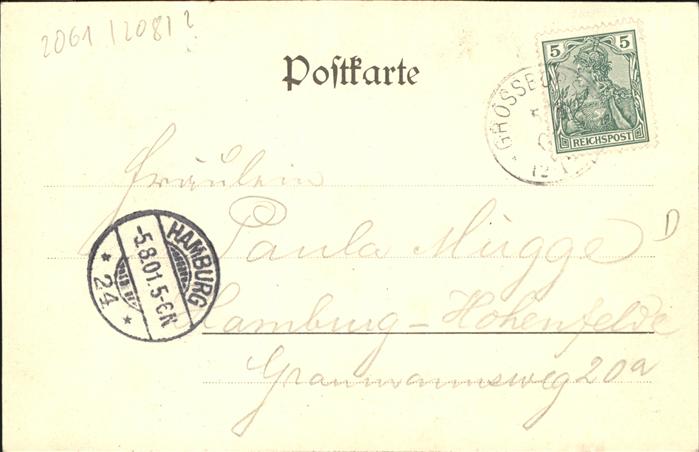 2061 / 2081 ?
Postkarte
5 5
REICHSPOST
GROSSBO
12-1
Fräulein
Paula Mügge
D
Hamburg - Hohenfelde
Graumannsweg 20a
HAMBURG
-5.8.01.5-6N
* 24 *